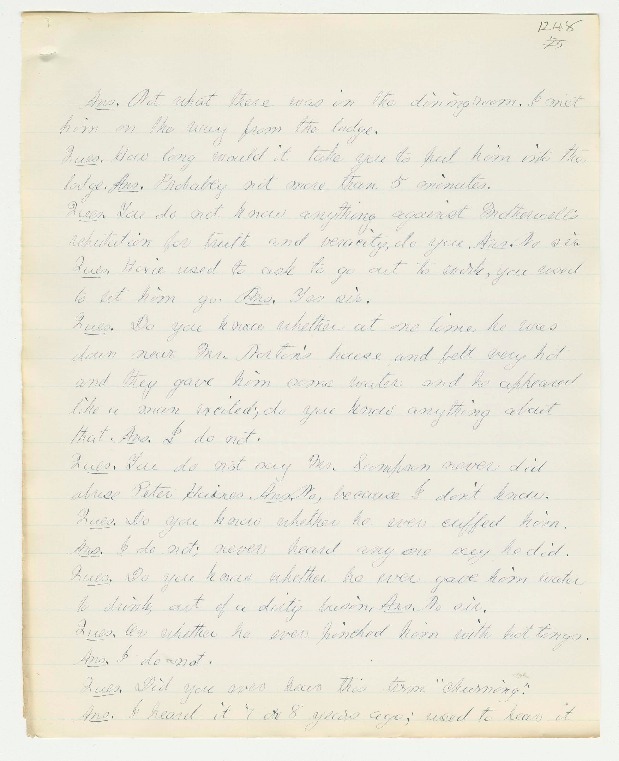 12.48
75
Ans. Not what there was in the diningroom. I met
him on the way from the lodge.
Ques. How long would it take you to put him into the
lodge. Ans. Probably not more than 5 minutes.
Ques. You do not know anything against
reputation for truth and veracity, do you. Ans. No sir.
Ques. used to ask to go out to work, you used
to let him go. Ans. Yes sir.
Ques. Do you know whether at one time he was
down near Mr. Norton's house and felt very hot
and they gave him some water and he appeared
like a man do you know anything about
that. Ans. I do not.
Ques. You do not say Mr. never did
abuse Peter Ans. No, because I don't know.
Ques. Do you know whether he ever cuffed him.
Ans. I do not; never heard any one say he did.
Ques. Do you know whether he ever gave him water
to drink out of a dirty basin. Ans. No sir.
Ques. Or whether he ever pinched him with hot tongs.
Ans. I do not.
Ques. Did you ever hear this term "churning".
Ans. I heard it 7 or 8 years ago; used to hear it